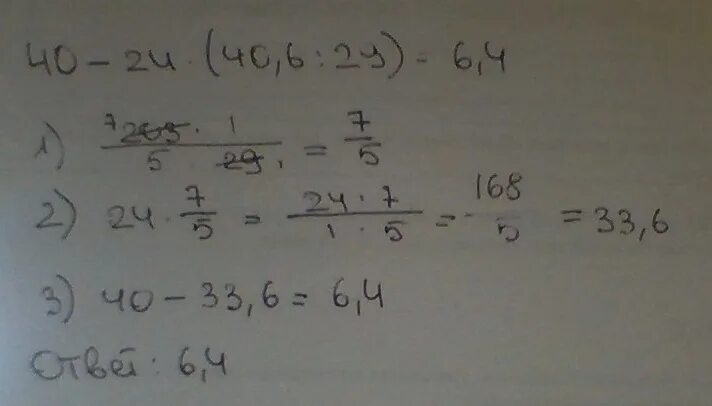 40 - 24 · (40,6 : 29) = 6,4
1) 7 203 · 1 / 5 · 29 1 = 7/5
2) 24 · 7/5 = 24 · 7 / 1 · 5 = 168/5 = 33,6
3) 40 - 33,6 = 6,4
Ответ: 6,4